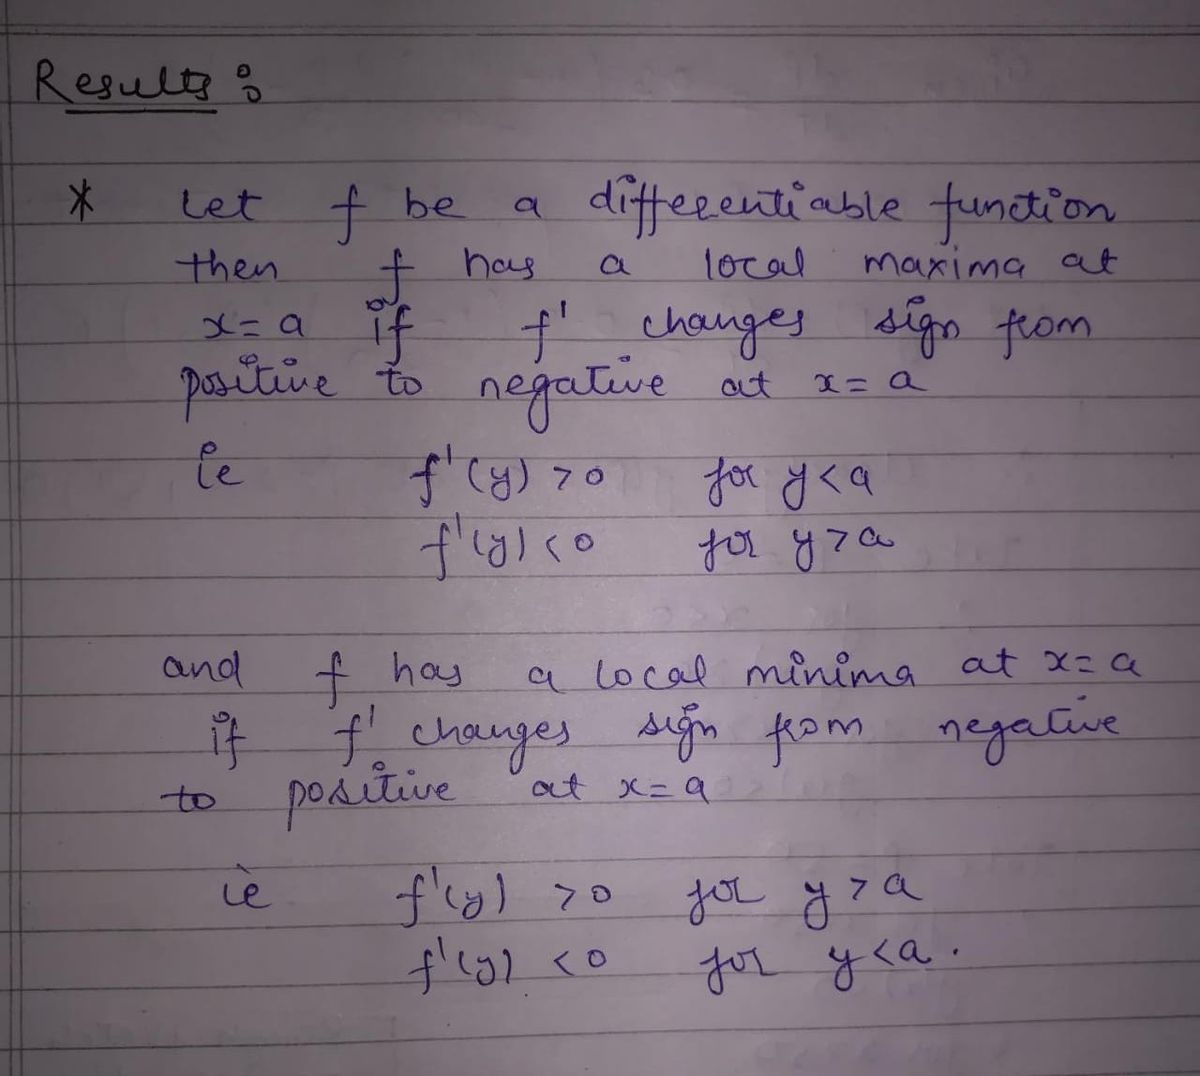 Results :
* Let f be a differentiable function
then f has a local maxima at
x = a if f' changes sign from
positive to negative at x = a
ie f'(y) > 0 for y < a
f'(y) < 0 for y > a
and f has a local minima at x = a
if f' changes sign from negative
to positive at x = a
ie f'(y) > 0 for y > a
f'(y) < 0 for y < a.